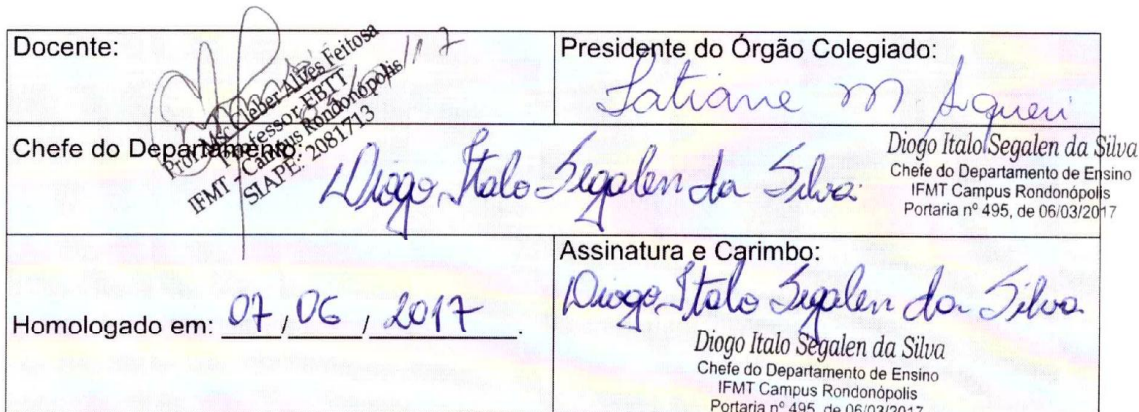 Docente:
Prof. Msc. Cleber Alves Feitosa
Professor EBTT
IFMT - Campus Rondonópolis
SIAPE: 2081713
/17
Presidente do Órgão Colegiado:
Tatiane M
Chefe do Departamento:
Diogo Italo Segalen da Silva
Diogo Italo Segalen da Silva
Chefe do Departamento de Ensino
IFMT Campus Rondonópolis
Portaria nº 495, de 06/03/2017
Homologado em: 07 / 06 / 2017.
Assinatura e Carimbo:
Diogo Italo Segalen da Silva
Diogo Italo Segalen da Silva
Chefe do Departamento de Ensino
IFMT Campus Rondonópolis
Portaria nº 495, de 06/03/2017